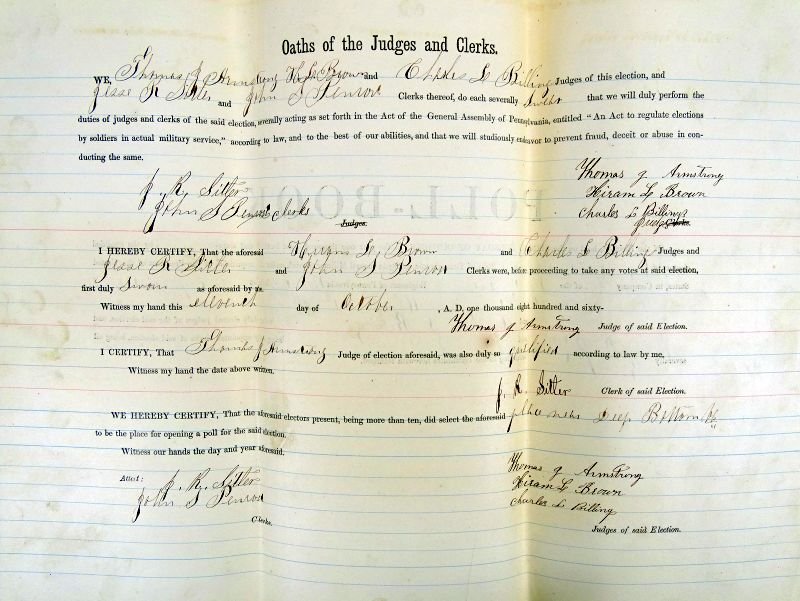 Oaths of the Judges and Clerks.
WE, Thomas J Armstrong H L Brown and Charles L Billing Judges of this election, and
Jesse R Sitler and John S Penrod Clerks thereof, do each severally Swear that we will duly perform the
duties of judges and clerks of the said election, severally acting as set forth in the Act of the General Assembly of Pennsylvania, entitled "An Act to regulate elections
by soldiers in actual military service," according to law, and to the best of our abilities, and that we will studiously endeavor to prevent fraud, deceit or abuse in con-
ducting the same.
Thomas J Armstrong
J. R. Sitler Hiram L Brown
John S Penrod Clerks Charles L Billings
Judges. Judges Clerks.
POLL-BOOK
I HEREBY CERTIFY, That the aforesaid Hiram L, Brown and Charles L Billings Judges and
Jesse R Sitler and John S Penrod Clerks were, before proceeding to take any votes at said election,
first duly Sworn as aforesaid by me.
Witness my hand this eleventh day of October, A. D. one thousand eight hundred and sixty-
Thomas J Armstrong Judge of said Election.
I CERTIFY, That Thomas J Armstrong Judge of election aforesaid, was also duly so qualified according to law by me,
Witness my hand the date above written,
J. R. Sitler Clerk of said Election.
WE HEREBY CERTIFY, That the aforesaid electors present, being more than ten, did select the aforesaid place near Deep Bottom Va
to be the place for opening a poll for the said election.
Witness our hands the day and year aforesaid.
Attest: J. R. Sitler Thomas J Armstrong
John S Penrod Hiram L Brown
Clerks. Charles L Billing
Judges of said Election.